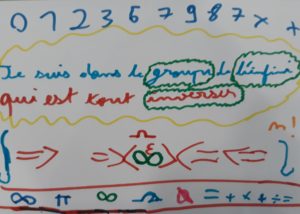 0 1 2 3 6 7 9 8 7 x +
Je suis dans le groupe de l'infini
qui est tout inverser
n!
{ => => ∞ <= <= }
∞ π ∞ = + x + ÷ =